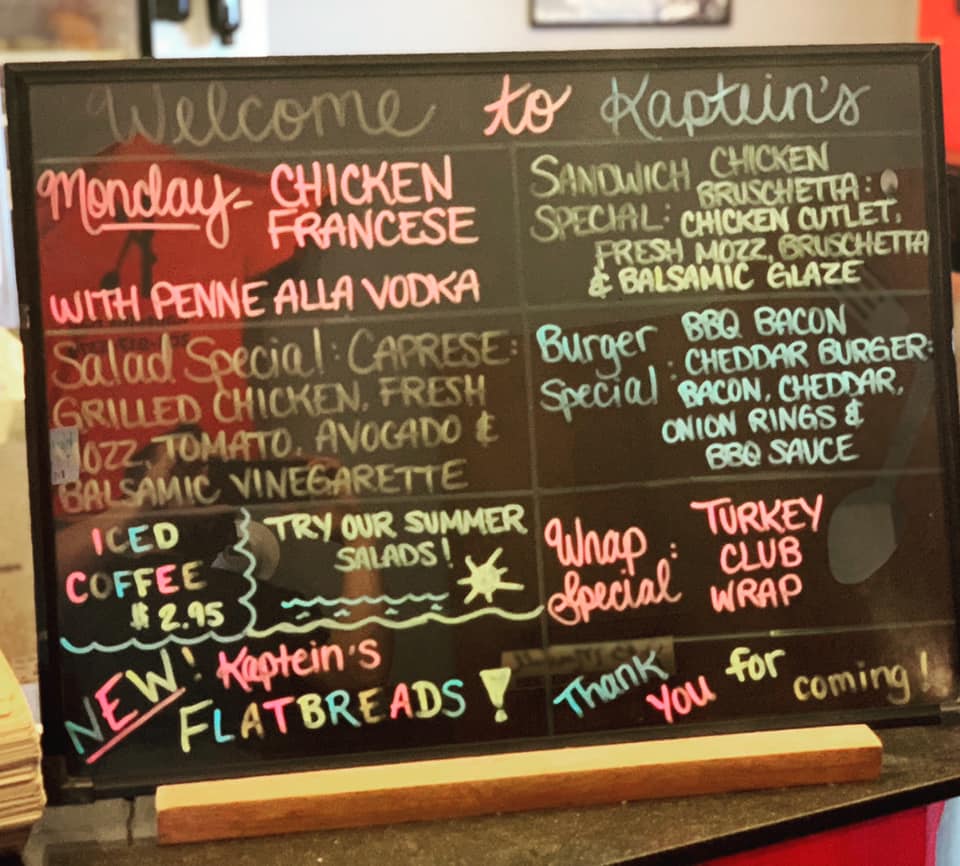 Welcome to Kaptein's
Monday- CHICKEN
FRANCESE
WITH PENNE ALLA VODKA
SANDWICH CHICKEN
BRUSCHETTA:
SPECIAL: CHICKEN CUTLET,
FRESH MOZZ, BRUSCHETTA
& BALSAMIC GLAZE
Salad Special: CAPRESE:
GRILLED CHICKEN, FRESH
MOZZ, TOMATO, AVOCADO &
BALSAMIC VINEGARETTE
Burger BBQ BACON
CHEDDAR BURGER:
Special: BACON, CHEDDAR,
ONION RINGS &
BBQ SAUCE
ICED
COFFEE
$2.95
TRY OUR SUMMER
SALADS!
Wrap TURKEY
Special: CLUB
WRAP
NEW! Kaptein's
FLATBREADS!
Thank You for coming!